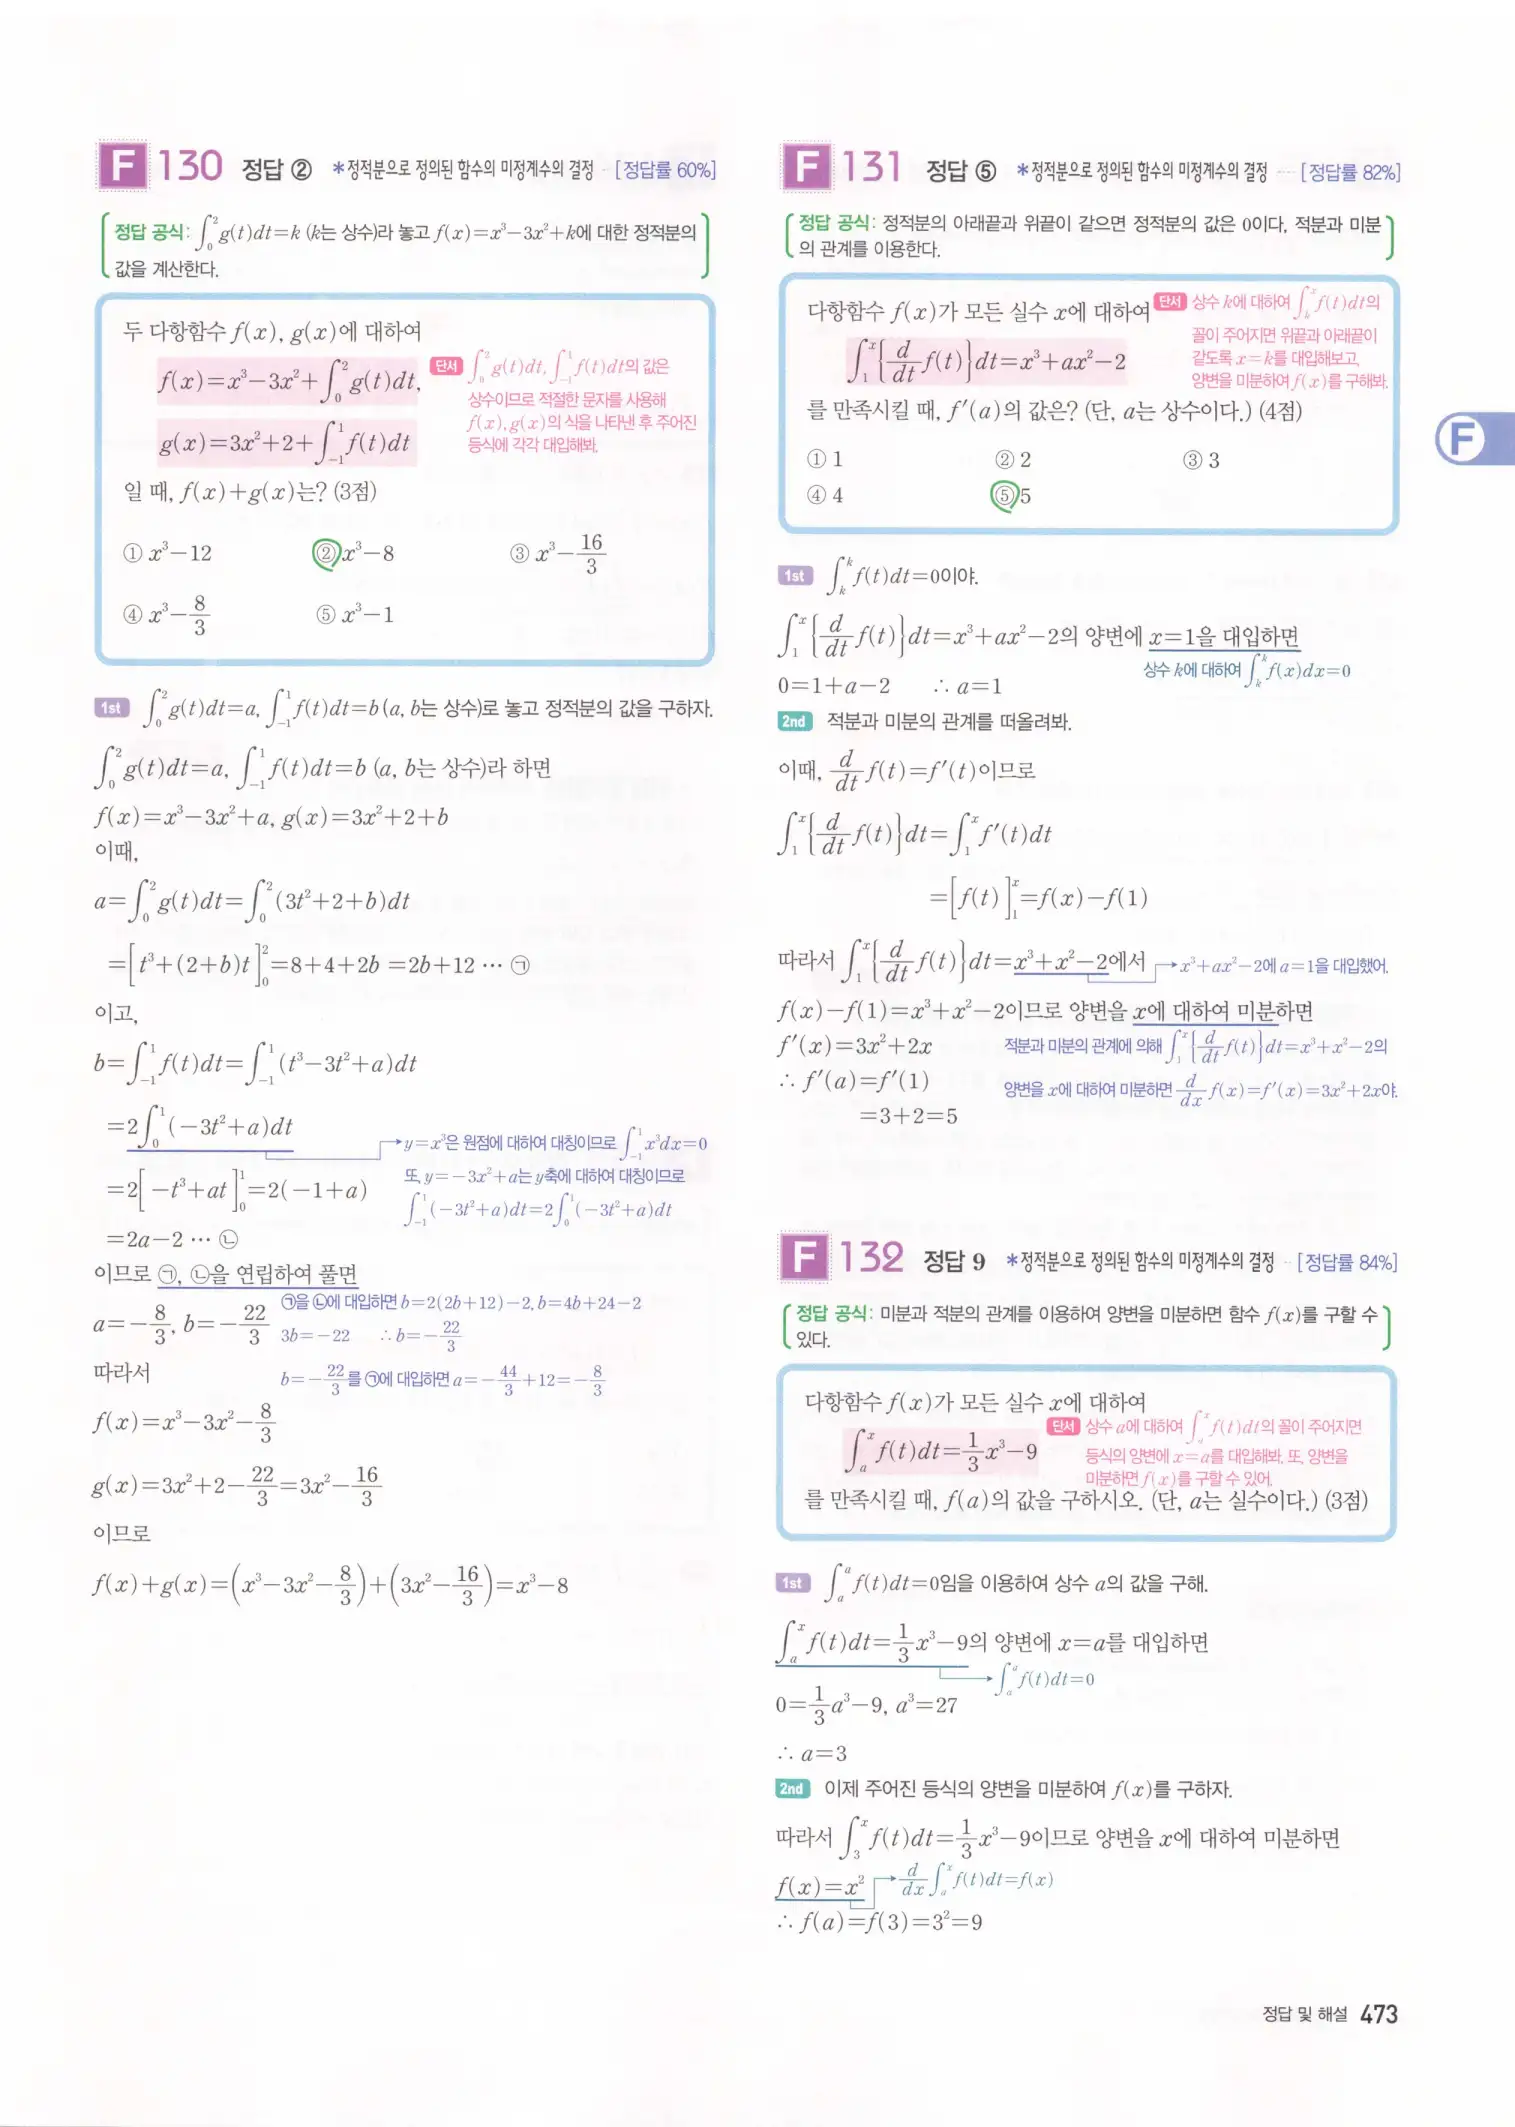 F 130 정답 ② *정적분으로 정의된 함수의 미정계수의 결정 [정답률 60%]
정답 공식: ∫₀² g(t)dt=k (k는 상수)라 놓고 f(x)=x³-3x²+k에 대한 정적분의
값을 계산한다.
두 다항함수 f(x), g(x)에 대하여
f(x)=x³-3x²+∫₀² g(t)dt,
g(x)=3x²+2+∫₋₁¹ f(t)dt
단서 ∫₀² g(t)dt, ∫₋₁¹ f(t)dt의 값은
상수이므로 적절한 문자를 사용해
f(x), g(x)의 식을 나타낸 후 주어진
등식에 각각 대입해봐.
일 때, f(x)+g(x)는? (3점)
① x³-12 ② x³-8 ③ x³-16/3
④ x³-8/3 ⑤ x³-1
1st ∫₀² g(t)dt=a, ∫₋₁¹ f(t)dt=b (a, b는 상수)로 놓고 정적분의 값을 구하자.
∫₀² g(t)dt=a, ∫₋₁¹ f(t)dt=b (a, b는 상수)라 하면
f(x)=x³-3x²+a, g(x)=3x²+2+b
이때,
a=∫₀² g(t)dt=∫₀² (3t²+2+b)dt
=[t³+(2+b)t]₀²=8+4+2b =2b+12 ⋯ ㉠
이고,
b=∫₋₁¹ f(t)dt=∫₋₁¹ (t³-3t²+a)dt
=2∫₀¹ (-3t²+a)dt
→ y=x³은 원점에 대하여 대칭이므로 ∫₋₁¹ x³dx=0
또, y=-3x²+a는 y축에 대하여 대칭이므로
∫₋₁¹ (-3t²+a)dt=2∫₀¹ (-3t²+a)dt
=2[-t³+at]₀¹=2(-1+a)
=2a-2 ⋯ ㉡
이므로 ㉠, ㉡을 연립하여 풀면
a=-8/3, b=-22/3
㉠을 ㉡에 대입하면 b=2(2b+12)-2, b=4b+24-2
3b=-22 ∴ b=-22/3
b=-22/3를 ㉠에 대입하면 a=-44/3+12=-8/3
따라서
f(x)=x³-3x²-8/3
g(x)=3x²+2-22/3=3x²-16/3
이므로
f(x)+g(x)=(x³-3x²-8/3)+(3x²-16/3)=x³-8
F 131 정답 ⑤ *정적분으로 정의된 함수의 미정계수의 결정 [정답률 82%]
정답 공식: 정적분의 아래끝과 위끝이 같으면 정적분의 값은 0이다, 적분과 미분
의 관계를 이용한다.
다항함수 f(x)가 모든 실수 x에 대하여
∫₁ˣ {d/dt f(t)}dt=x³+ax²-2
단서 상수 k에 대하여 ∫ₖˣ f(t)dt의
꼴이 주어지면 위끝과 아래끝이
같도록 x=k를 대입해보고,
양변을 미분하여 f(x)를 구해봐.
를 만족시킬 때, f'(a)의 값은? (단, a는 상수이다.) (4점)
① 1 ② 2 ③ 3
④ 4 ⑤ 5
1st ∫ₖᵏ f(t)dt=0이야.
∫₁ˣ {d/dt f(t)}dt=x³+ax²-2의 양변에 x=1을 대입하면
상수 k에 대하여 ∫ₖᵏ f(x)dx=0
0=1+a-2 ∴ a=1
2nd 적분과 미분의 관계를 떠올려봐.
이때, d/dt f(t)=f'(t)이므로
∫₁ˣ {d/dt f(t)}dt=∫₁ˣ f'(t)dt
=[f(t)]₁ˣ=f(x)-f(1)
따라서 ∫₁ˣ {d/dt f(t)}dt=x³+x²-2에서 → x³+ax²-2에 a=1을 대입했어.
f(x)-f(1)=x³+x²-2이므로 양변을 x에 대하여 미분하면
f'(x)=3x²+2x
∴ f'(a)=f'(1)
=3+2=5
적분과 미분의 관계에 의해 ∫₁ˣ {d/dt f(t)}dt=x³+x²-2의
양변을 x에 대하여 미분하면 d/dx f(x)=f'(x)=3x²+2x야.
F 132 정답 9 *정적분으로 정의된 함수의 미정계수의 결정 [정답률 84%]
정답 공식: 미분과 적분의 관계를 이용하여 양변을 미분하면 함수 f(x)를 구할 수
있다.
다항함수 f(x)가 모든 실수 x에 대하여
∫ₐˣ f(t)dt=1/3 x³-9
단서 상수 a에 대하여 ∫ₐˣ f(t)dt의 꼴이 주어지면
등식의 양변에 x=a를 대입해봐. 또, 양변을
미분하면 f(x)를 구할 수 있어.
를 만족시킬 때, f(a)의 값을 구하시오. (단, a는 실수이다.) (3점)
1st ∫ₐᵃ f(t)dt=0임을 이용하여 상수 a의 값을 구해.
∫ₐˣ f(t)dt=1/3 x³-9의 양변에 x=a를 대입하면
→ ∫ₐᵃ f(t)dt=0
0=1/3 a³-9, a³=27
∴ a=3
2nd 이제 주어진 등식의 양변을 미분하여 f(x)를 구하자.
따라서 ∫₃ˣ f(t)dt=1/3 x³-9이므로 양변을 x에 대하여 미분하면
f(x)=x² → d/dx ∫ₐˣ f(t)dt=f(x)
∴ f(a)=f(3)=3²=9
F
정답 및 해설 473